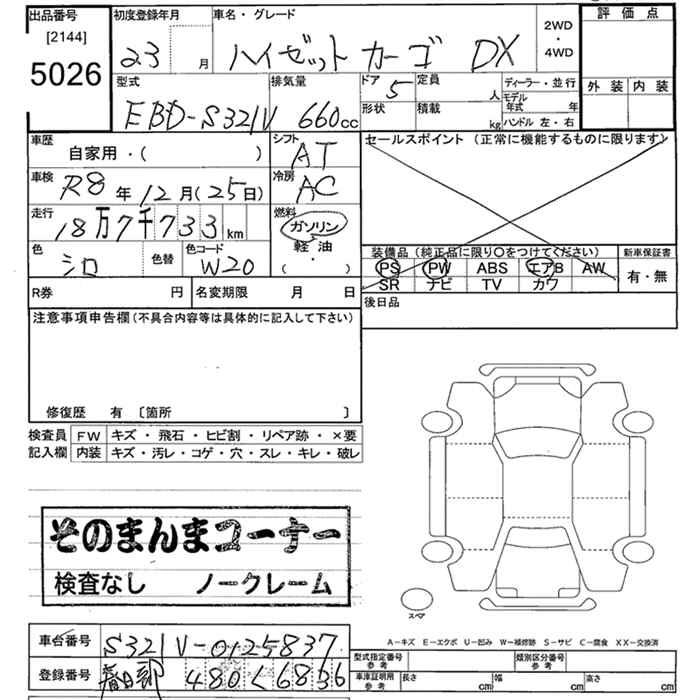 出品番号 初度登録年月 車名・グレード 2WD・4WD 評価点
[2144] 5026
23 月 ハイゼットカーゴ DX
外装 内装
型式 排気量 ドア 定員 ディーラー・並行
EBD-S321V 660cc 5 人
形状 積載 モデル年式 年
kg ハンドル 左・右
車歴 シフト セールスポイント (正常に機能するものに限ります)
自家用・( ) AT
車検 R8年12月(25日) 冷房 AC
走行 18万7千733km 燃料 ガソリン
軽油・( )
色 シロ 色替 色コード W20
装備品 (純正品に限り○をつけてください) 新車保証書
PS PW ABS エアB AW 有・無
SR ナビ TV カワ
R券 円 名変期限 月 日 後日品
注意事項申告欄 (不具合内容等は具体的に記入して下さい)
修復歴 有 〔箇所 〕
検査員 FW キズ・飛石・ヒビ割・リペア跡・×要
記入欄 内装 キズ・汚レ・コゲ・穴・スレ・キレ・破レ
そのまんまコーナー
検査なし ノークレーム
スペア
A-キズ E-エクボ U-凹み W-補修跡 S-サビ C-腐食 XX-交換済
車台番号 S321V-0125837
登録番号 春日部 480く6836
型式指定番号 参考 類別区分番号 参考
車庫証明用 参考 長さ cm 幅 cm 高さ cm